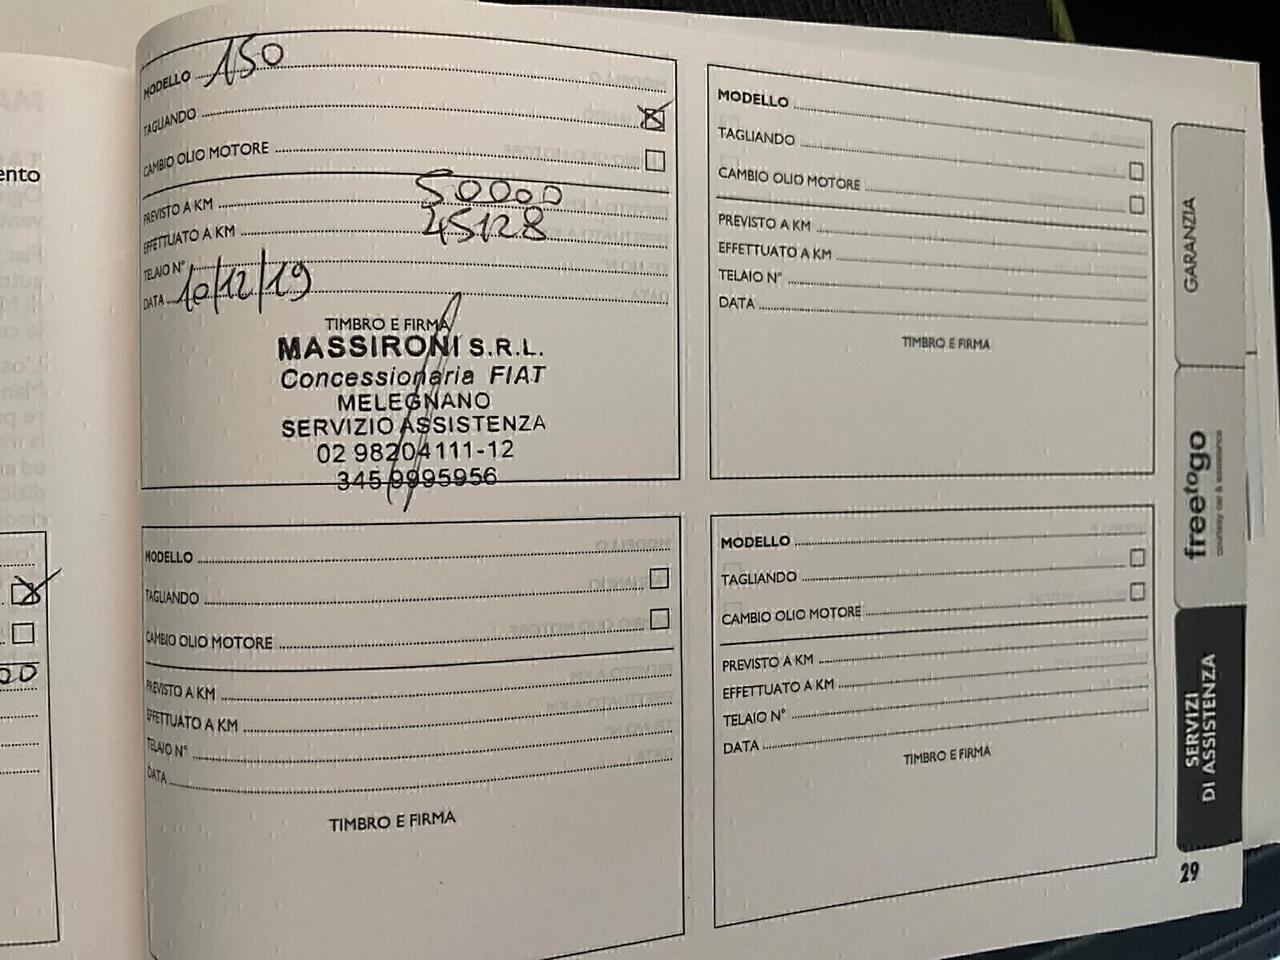 MODELLO 150
TAGLIANDO
CAMBIO OLIO MOTORE
PREVISTO A KM 50000
EFFETTUATO A KM 45128
TELAIO N°
DATA 10/12/19
TIMBRO E FIRMA
MASSIRONI S.R.L.
Concessionaria FIAT
MELEGNANO
SERVIZIO ASSISTENZA
02 98204111-12
345 9995956
MODELLO
TAGLIANDO
CAMBIO OLIO MOTORE
PREVISTO A KM
EFFETTUATO A KM
TELAIO N°
DATA
TIMBRO E FIRMA
MODELLO
TAGLIANDO
CAMBIO OLIO MOTORE
PREVISTO A KM
EFFETTUATO A KM
TELAIO N°
DATA
TIMBRO E FIRMA
MODELLO
TAGLIANDO
CAMBIO OLIO MOTORE
PREVISTO A KM
EFFETTUATO A KM
TELAIO N°
DATA
TIMBRO E FIRMA
GARANZIA
freetogo
courtesy car & assistance
SERVIZI
DI ASSISTENZA
29